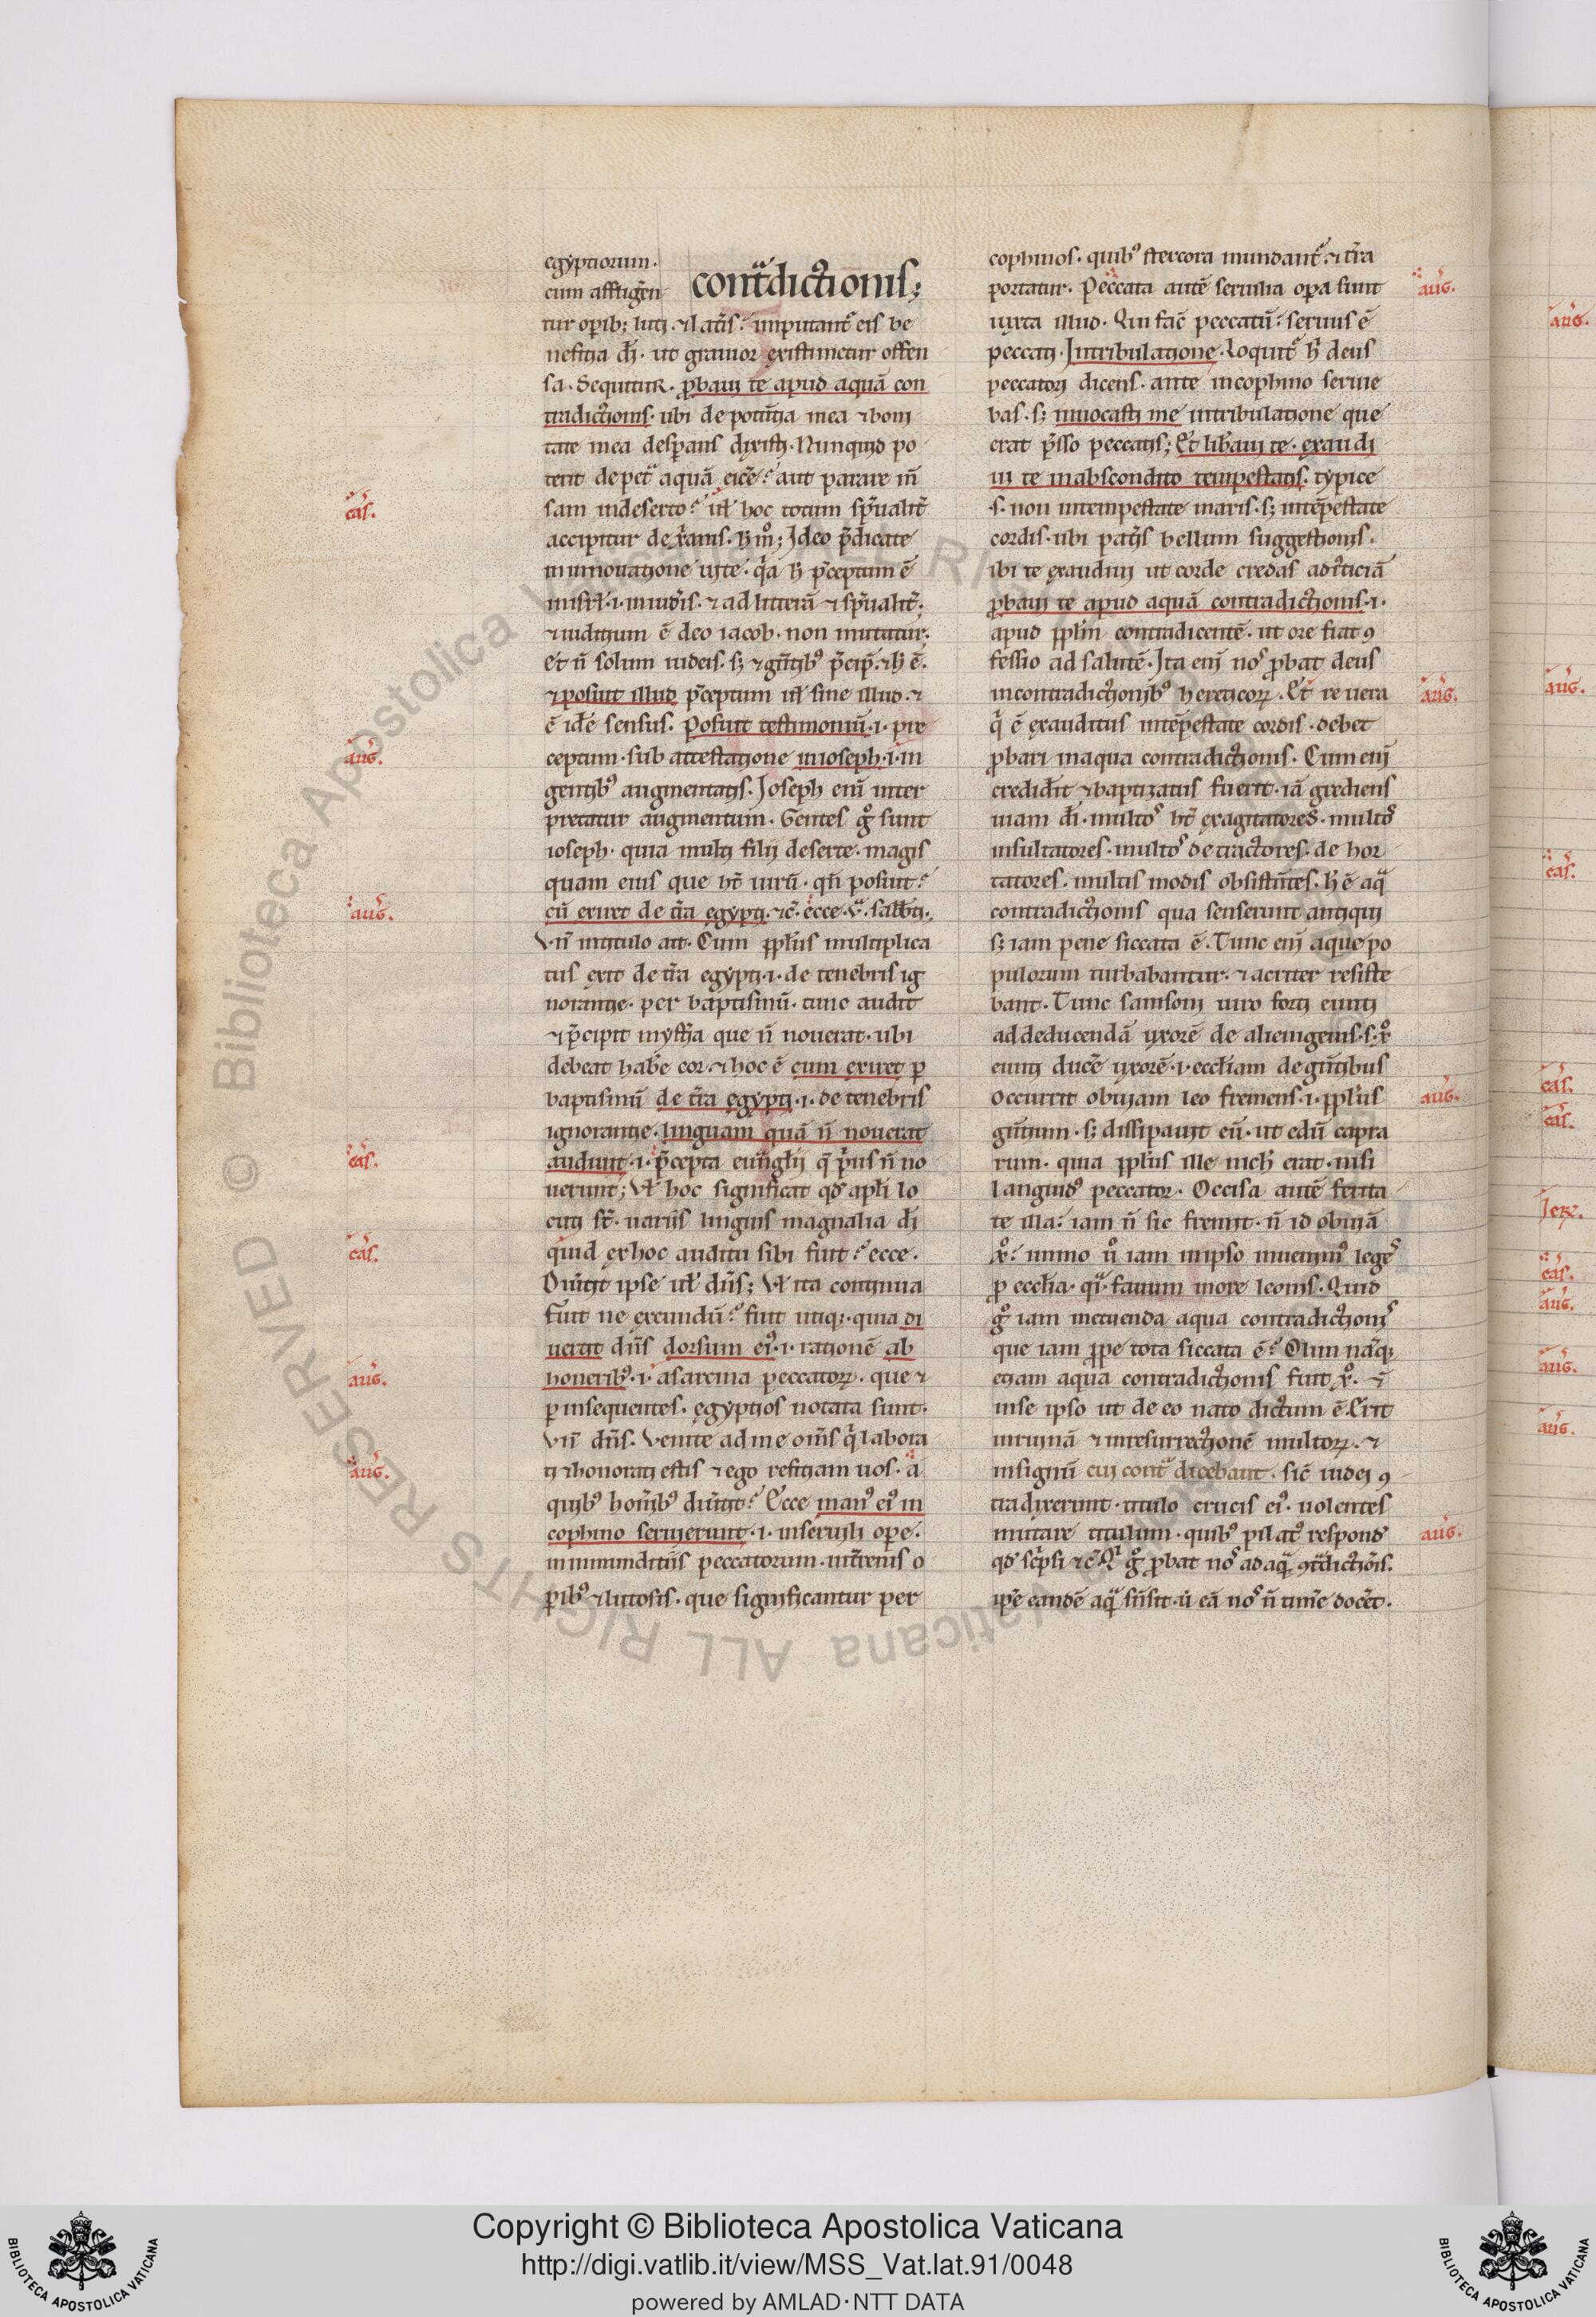 egyptiorum.
cum affligen
contᵃdictionis;
tur opib; luti. ⁊ lat̄is. imputant᷑ eis be
neficia d̄i. ut grauior existimetur offen
sa. Sequitur. ꝓbaui te apud aquā con
tradictionis. ubi de potētia mea ⁊ boni
tate mea desperans dixisti. Nunquid po
terit de petᵃ aquā eicē? aut parare m̄
sam indeserto? ul̓ hoc totum sp̄ualit̄
accipitur
mutatur.
Et n̄ solum iudeis. s; ⁊ gētibꝰ p̄cip̄. ⁊ h̓ ē.
⁊ posuit illud p̄ceptum ul̓ sine illud. ⁊
ē idē sensus. Posuit testimoniū .i. pre
ceptum. sub attestatione inioseph .i. in
gentibꝰ augmentatis. Joseph eni inter
pretatur augmentum. Gentes gͦ sunt
ioseph. quia multi filii deserte. magis
quam eius que ht̄ uirū. qn̄ posuit?
cū exiret de t̄ra egypti. ⁊c̄. ecce
Vn̄ intitulo ait. Cum ppl̓us multiplica
tus exit de t̄ra egypti .i. de tenebris ig
norantie. per baptismū. tunc audit
⁊ p̄cipit myst̄ia que n̄ nouerat. ubi
debeat hab̄e cor. ⁊ hoc ē cum exiret p
baptismū de t̄ra egypti .i. de tenebris
ignorantie. linguam quā n̄ nouerat
audiuit .i. p̄cepta eungl̓ii q̄ p̄us n̄ no
uerunt; Vl̓ hoc significat qd̓ apl̓i lo
cuti st̄. uariis linguis magnalia d̄i
quid exhoc auditu sibi fuit? ecce.
Diūtit ipse ul̓ dn̄s; Vl̓ ita continua
fuit ne exeundū? fuit utiq;. quia di
uertit dn̄s dorsum eiꝰ .i. rationē ab
honeribꝰ .i. asarcina peccatoꝝ. que ⁊
p insequentes. egyptios notata sunt.
Vn̄ dn̄s. Venite ad me om̄s qͥ labora
ti ⁊ honorati estis ⁊ ego reficiam uos. a
quibꝰ hon̄ibꝰ diūtit? Ecce manꝰ eiꝰ in
cophino seruierunt .i. inseruili ope.
in inmunditiis peccatorum. int̄renis o
pibꝰ ⁊ lutosis. que significantur per
cophinos. quibꝰ stercora mundant᷑. ⁊ t̄ra
portatur. Peccata autē seruilia opa sunt
iuxta illud. Qui facit peccatū. seruus ē
peccati. Intribulatione. Loquit᷑ h̓ deus
peccatori dicens. ante incophino seruie
bas. s; inuocasti me intribulatione que
erat p̄sso peccatis; Et lib̓aui te. exaudi
ui te inabscondito tempestatis. typice
.s. non intempestate maris. s; intēpestate
cordis. ubi patis bellum suggestionis.
ibi te exaudiui ut corde credas ad iusticiā
ꝓbaui te apud aquā contradictionis .i.
apud ppl̓m contradicentē. ut ore fiat ꝯ
fessio ad salutē. Ita eni nos ꝓbat deus
incontradictionibꝰ hereticoꝝ. Et re uera
qͥ ē exauditus intēpestate cordis. debet
ꝓbari inaqua contradictionis. Cum eni
credidit ⁊ baptizatus fuerit. iā grediens
uiam d̄i. multos ht̄ exagitatores. multos
insultatores. multos detractores. de hor
tatores. multis modis obsistētes. h̓ ē aqᵃ
contradictionis qua senserunt antiqui
s; iam pene siccata ē. Tunc eni aque po
pulorum turbabantur. ⁊ acriter resiste
bant. Tunc samsoni uiro forti eunti
ad deducendā uxorē de alienigenis .s. xͦ
eunti ducē uxorē .i. eccl̓iam de gētibus
occurrit obuiam leo fremens .i. ppl̓us
gētium. s; dissipauit eū. ut edū capra
rum. quia ppl̓us ille nich̓ erat. nisi
languidꝰ peccator. Occisa autē ferita
te illa. iam n̄ sic fremit. n̄ id obuiā
xͦ. immo uͦ iam inipso inuenimꝰ leges
ꝓ eccl̓ia. qᵃi fauum inore leonis. Quid
gͦ iam metuenda aqua contradictionis
que iam ꝓpe tota siccata ē? Olim nāq;
etiam aqua contradictionis fuit xͦ. ⁊
inse ipso ut de eo nato dictum ē. Erit
inruinā ⁊ inresurrectionē multoꝝ. ⁊
insignū cui contᵃ dicebant. sic̄ iudei ꝯ
tradixerunt. titulo crucis eiꝰ. uolentes
mutare titulum. quibꝰ pilatꝰ respond̓
qd̓ sc̄psi ⁊c̄. Qͥ gͦ ꝓbat nos ad aqᵃ ꝯtᵃdictiōis.
ip̄e eandē aqᵃ
cas.
aug.
aug.
cas.
cas.
aug.
aug.
aug.
aug.
aug.
aug.
aug.
aug.
cas.
cas.
cas.
Jer.
cas.
aug.
aug.
aug.
Copyright © Biblioteca Apostolica Vaticana
http://digi.vatlib.it/view/MSS_Vat.lat.91/0048
powered by AMLAD·NTT DATA
BIBLIOTECA APOSTOLICA VATICANA
BIBLIOTECA APOSTOLICA VATICANA